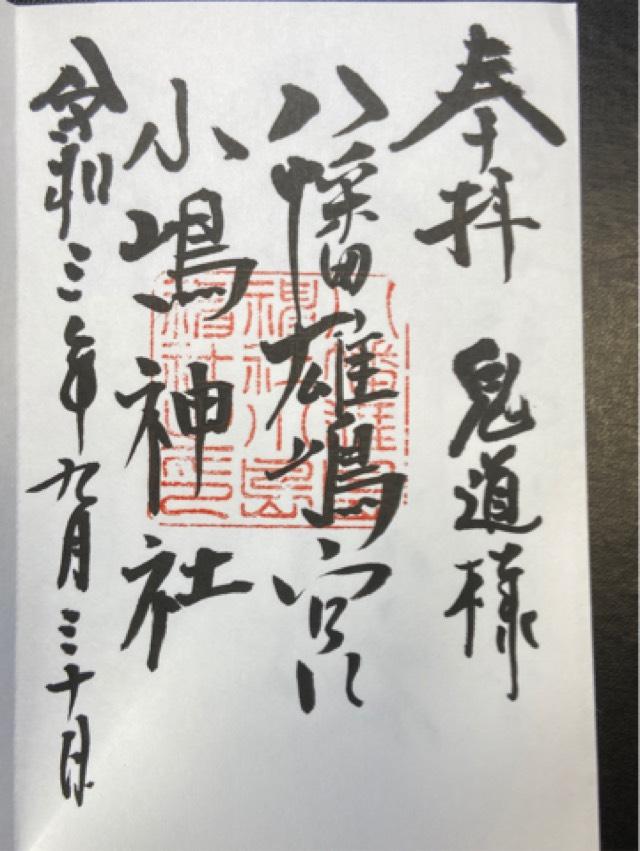 奉拝 鬼道様
八幡雄嶋宮
小嶋神社
令和三年九月三十日